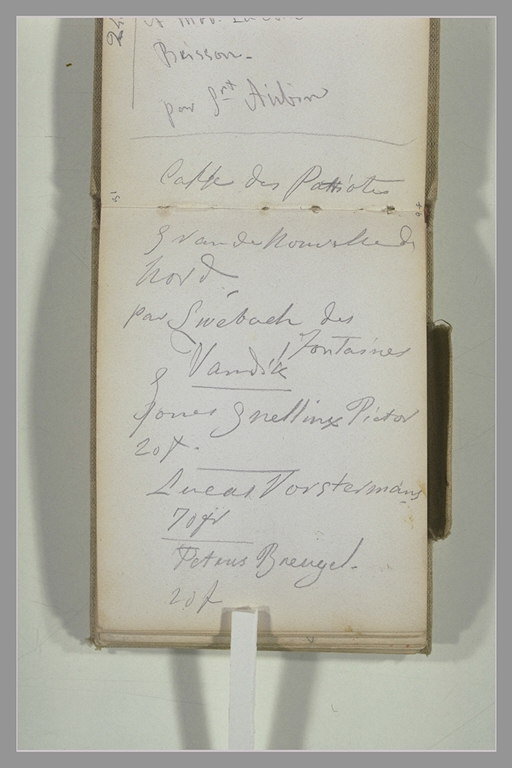 Buisson.
par St Aubin
Caffe des Patriotes
grande nouvelle du
Nord
par Swebach des
Fontaines
Vandik
Jones Snellinx Pictor
20f.
Lucas Vorstermans
70fr
Petrus Breugel.
20f